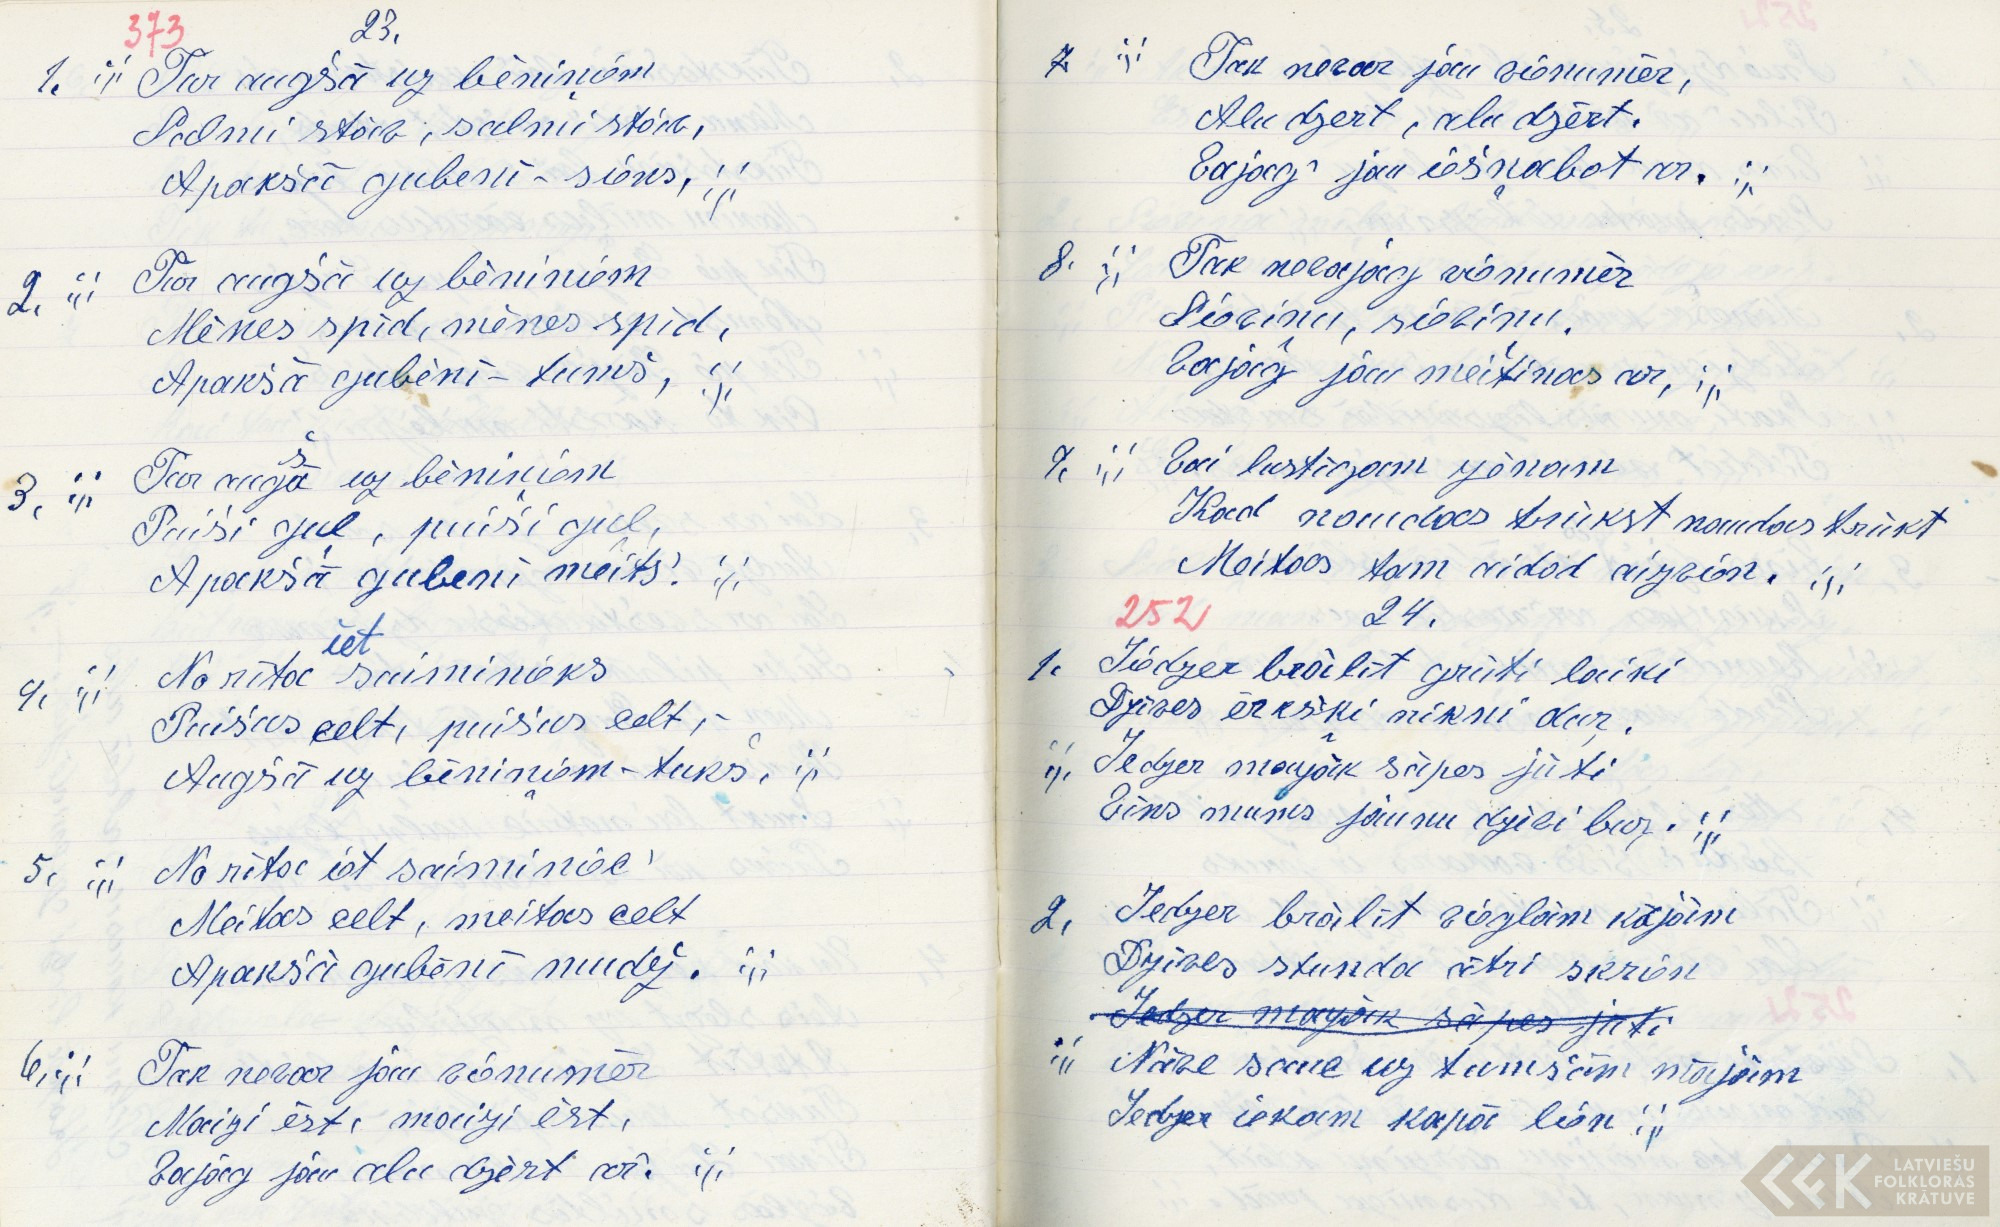 373
23.
1. ;;; Tur augšā uz bēniņiem
Salmi stāv, salmi stāv,
Apakšā gubenī - siens, ;;;
2. ;;; Tur augšā uz bēniniem
Mēnes spīd, mēnes spīd,
Apakšā gubēnī - tumš, ;;;
3. ;;; Tur augšā uz bēniņiem
Puiši guļ, puiši guļ,
Apakšā gubenī meits'. ;;;
4. ;;; No rīta iet saiminieks
Puišus celt, puišus celt, -
Augšā uz bēniņiem - tukš. ;;;
5. ;;; No rīta iet saiminiec'
Meitas celt, meitas celt
Apakšā gubēnī mudž. ;;;
6. ;;; Tak nevar jau vienumēr
Maizi ēst, maizi ēst,
Vajag jau alu dzērt ar'. ;;;
7. ;;; Tak nevar jau vienumēr,
Alu dzert, alu dzērt.
Vajag' jau iešņabot ar. ;;;
8. ;;; Tak nevajag vienumēr
Sieviņu, sieviņu.
Vajag jau meitiņas ar, ;;;
9. ;;; Vai lustīgam zēnam
Kad naudas trūkst naudas trūkt
Meitas tam aidod aizvien. ;;;
252
24.
1. Iedzer brālīt grūti laiki
Dzīves ērkšķi nikni dur,
;;; Iedzer mazāk sāpes jūti
Vīns mums jaunu dzīvi bur. ;;;
2. Iedzer brālīt vieglām kājām
Dzīves stunda ātri skrien
Iedzer mazāk sāpes jūti
;;; Nāve sauc uz tumšām mājām
Iedzer iekam kapā lien ;;;
LATVIEŠU
FOLKLORAS
KRĀTUVE